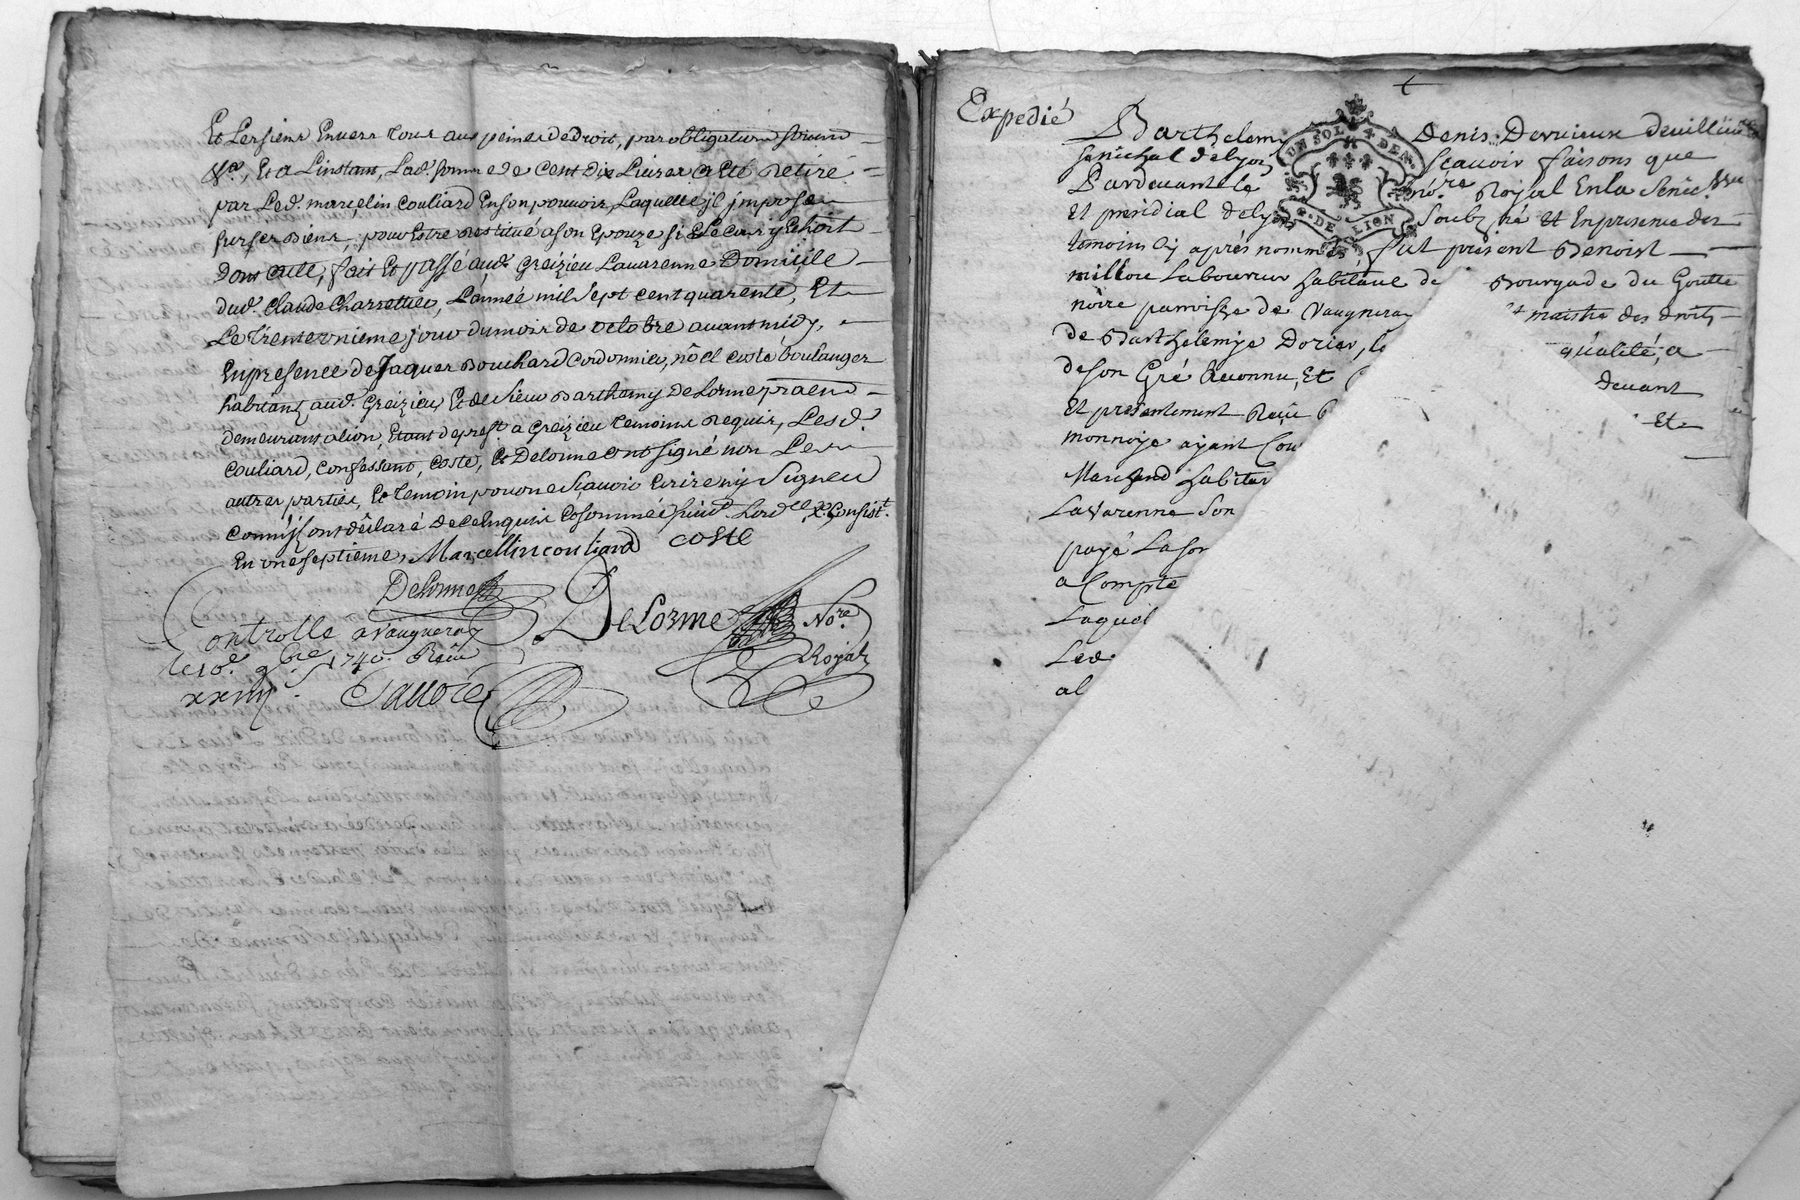 Et Les siens Envers tous aux peines de Droit, par obligation soumon
&ra, Et a Linstant, Lad. somme de cent dix Livres a eté Retiré
par Led. marcelin couliard En son pouvoir, Laquelle jl jmpose
sur ses Biens, pour Estre Restitué a son Epouze si Le cas y Echoit
Dont acte, fait Et passé aud. Greizieu Lavarenne Domicille
dud. Claude Charrettier, L'année mil sept cent quarente, Et
Le Trente vnieme jour du mois de octobre avant midy,
En presence de Jaques Bouchard Cordonnier, nöel coste boulanger
habitans aud. Greizieu, Et de sieur Barthemy DeLorme praen
demeurant alion, Etant de prest. a Greizieu Temoins Requis, Les d.
Couliard, confessant, coste, Et DeLorme ont signé non Les
autres parties, Et Temoin pour ne sçavoir Ecrire ny signer
Comm'jls ont déclaré de ce Enquis Et sommés
En vne septieme, Marcellin couliard coste
DeLorme
DeLorme No.re
Royal
Controlle a Vaugneray
le 10e 9bre 1740. Reçu
xxiiij s. Sauvore
Expedié
Barthelemy Denis Dervieux de
UN SOL 4. DEN
G. DE LION
senéchal de Lyon, sçavoir faisons que
Pardevant le no.re Royal En la Senéc.
Et presidial de Lyon soubz.né Et En presence des
temoins Cy après nommés, fut présent Benoist
millou Laboureur habitant de Bourgade du Goutte
noire parroisse de Vaugneray et maistre des droits
de Barthelemye Dorier, qualité, a
de son Gré Reconnu, Et devant
Et presentement Reçu Et
monnoye ayant Cou
Marchand habitan
Lavarenne Son
payé La som
a Compte
Laquel
Led.
al